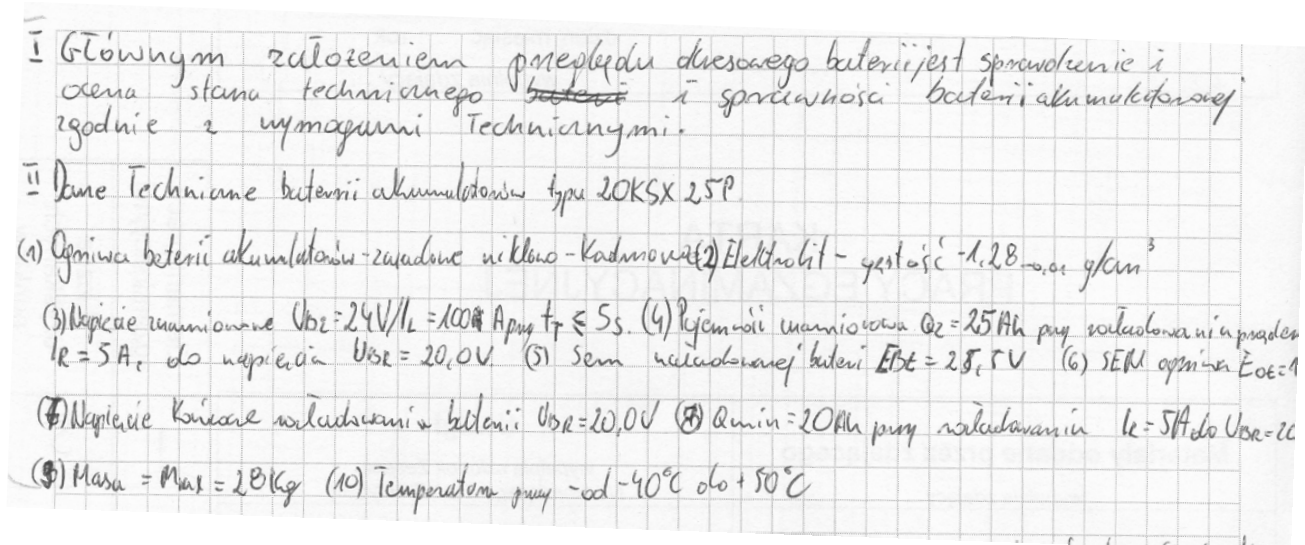 I Głównym założeniem przeglądu okresowego baterii jest sprawdzenie i
ocena stanu technicznego i sprawności baterii akumulatorowej
zgodnie z wymogami Technicznymi.
II Dane Techniczne baterii akumulatorów typu 20KSX 25P
(1) Ogniwa baterii akumulatorów - zasadowe niklowo - Kadmowe (2) Elektrolit - gęstość - 1,28 g/cm³
(3) Napięcie znamionowe UBZ = 24V/IL = 100 A przy tr ≤ 5s. (4) Pojemność znamionowa Qz = 25Ah przy rozładowaniu prądem
IR = 5A, do napięcia UBR = 20,0V. (5) Sem naładowanej baterii EBt = 25,5V (6) SEM ogniwa EOt = 1
(7) Napięcie Końcowe rozładowania baterii UBR = 20,0V (8) Qmin = 20Ah przy rozładowaniu IR = 5A do UBR = 20
(9) Masa = Mmax = 28Kg (10) Temperatura pracy - od -40°C do +50°C